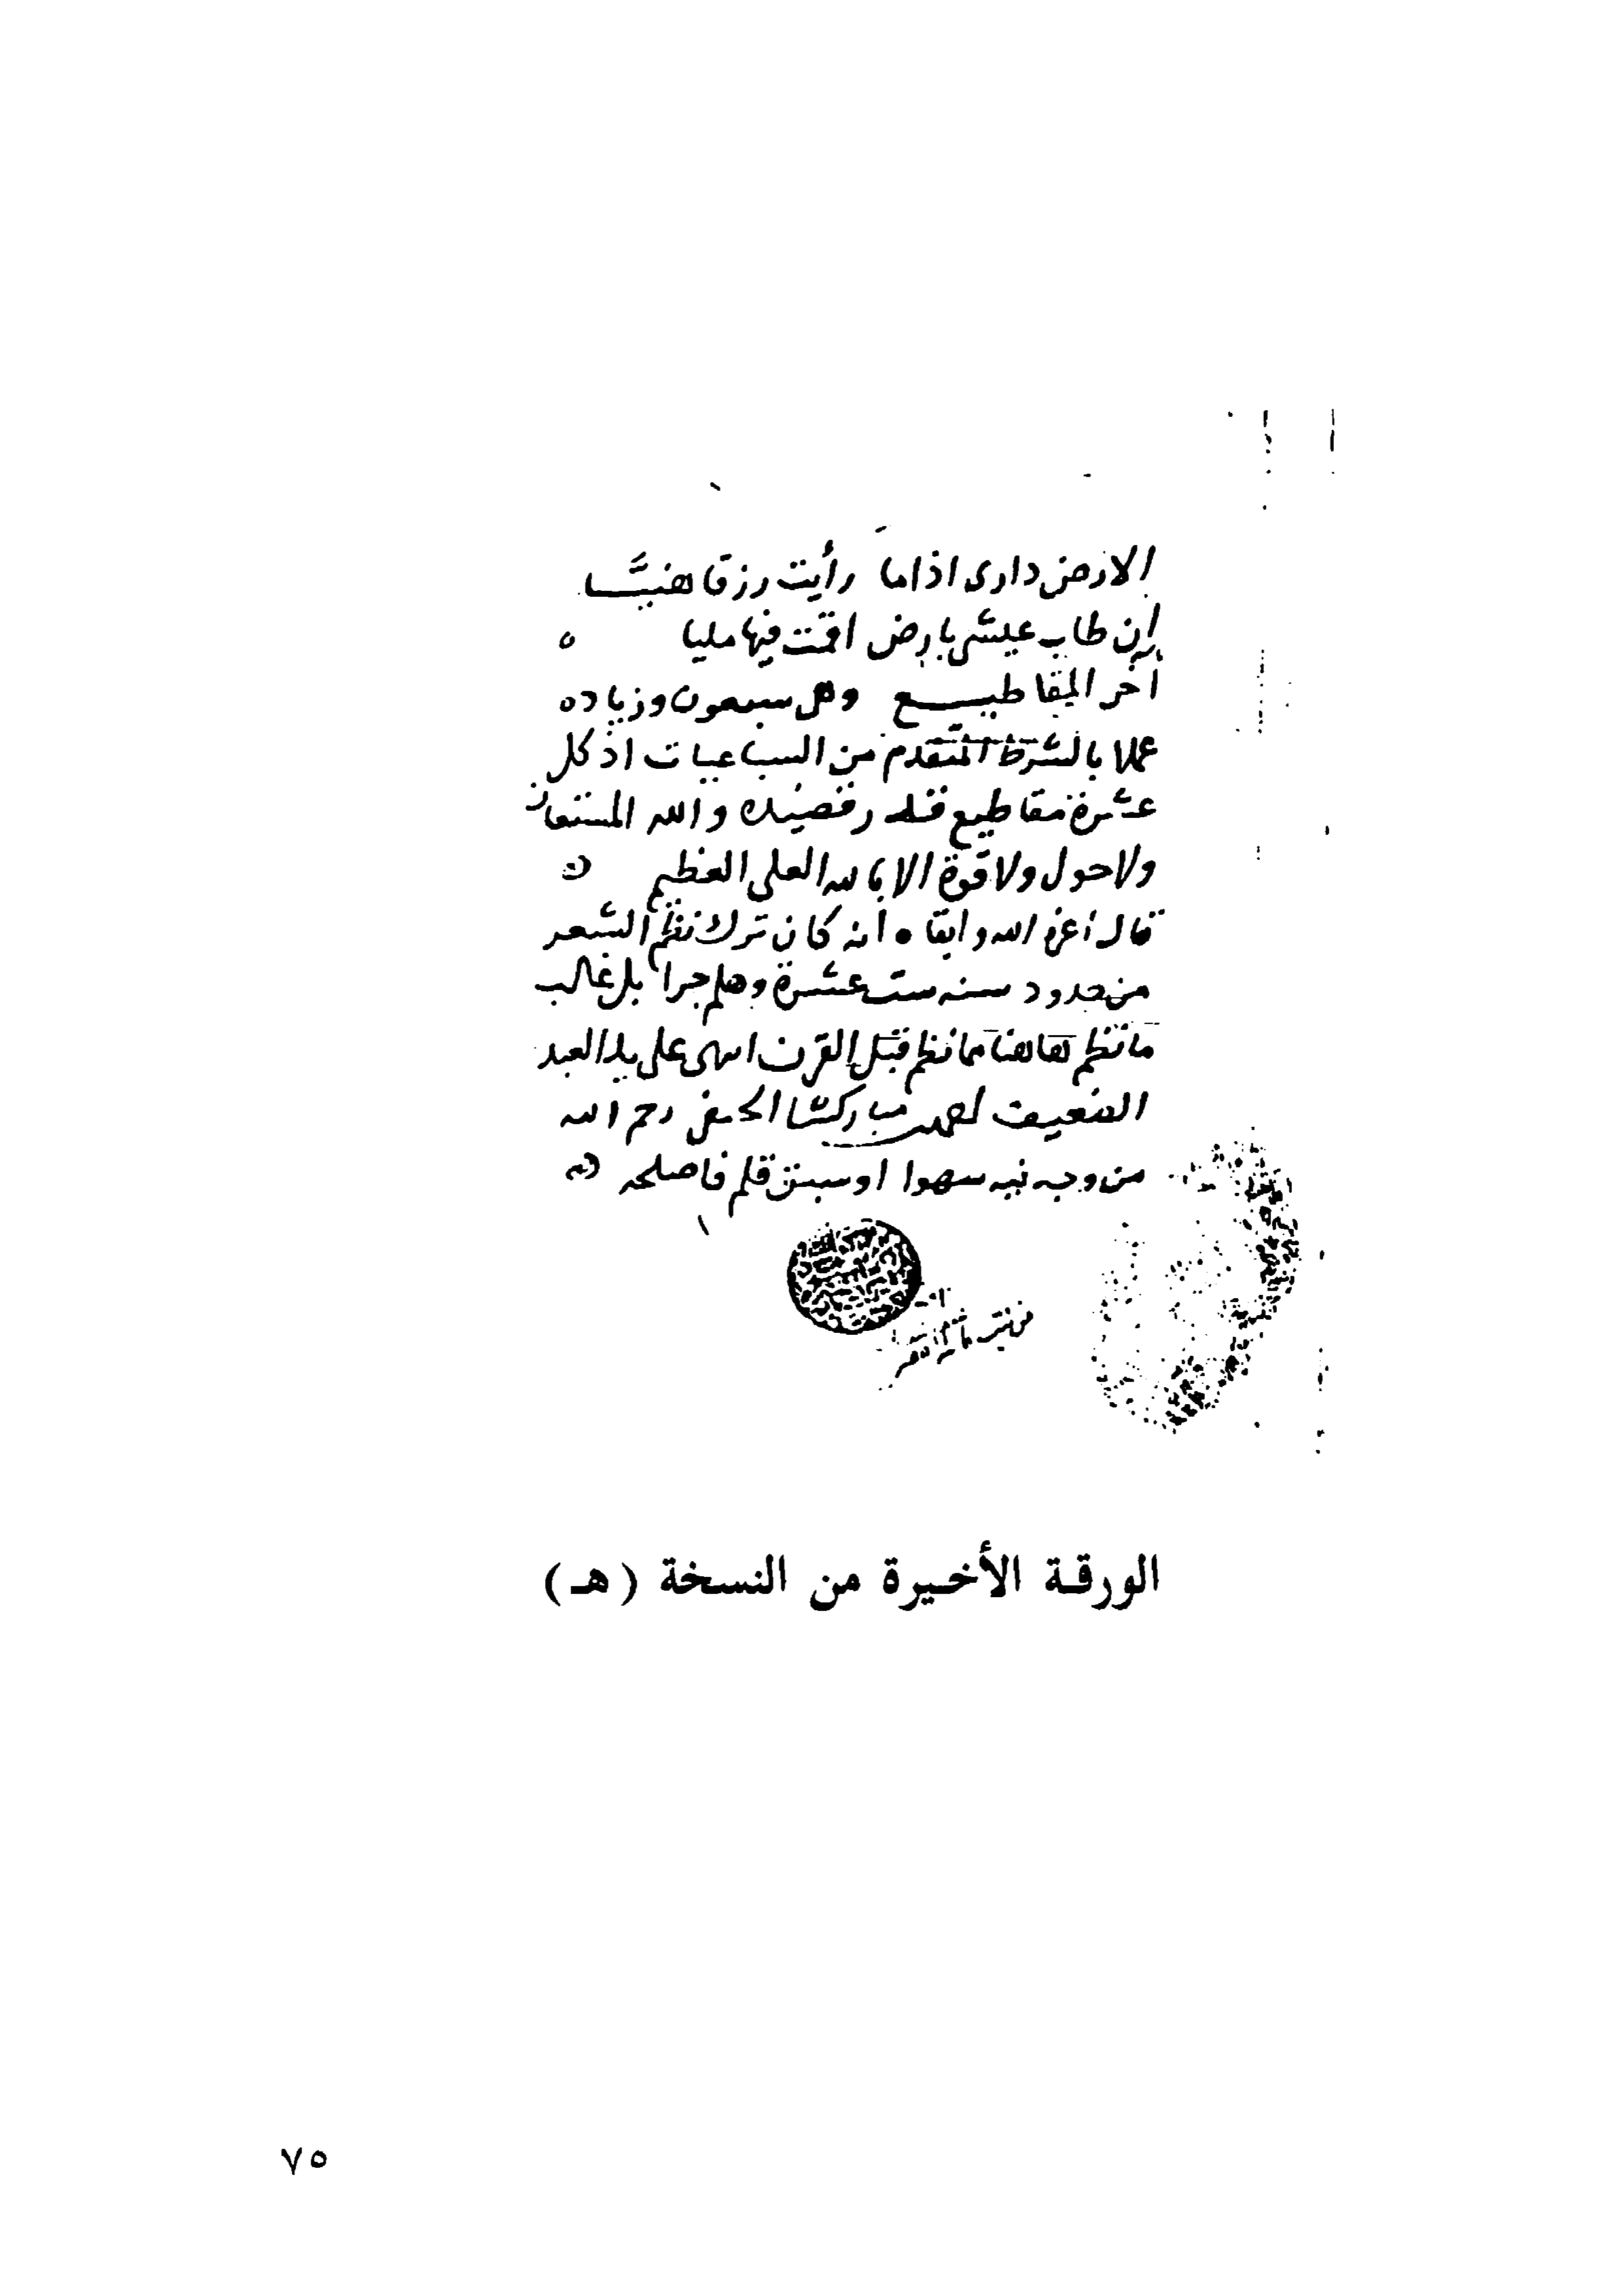 الارض دارى اذا ما رأيت رزقا هنيّا
إن طاب عيشى بارض اقمت فيها مليا ه
آخر المقاطيع وهى سبعون وزياده
عملا بالشرط المتقدم من السباعيات اذ كل
عشرة مقاطيع قصيدة والله المستعان
ولا حول ولا قوة الا بالله العلى العظيم
قال أعزه الله وابقاه أنه كان ترك نظم الشعر
من حدود سنه ست عشرة وهلم جرا بل غالب
ما نظم هاهنا مما نظم قبل القرن انتهى على يد العبد
الضعيف مباركشا الحنفى رحم الله
من وجد فيه سهوا او سبق قلم فاصلحه
الورقـة الأخـيرة من النسخة (هـ)
٧٥